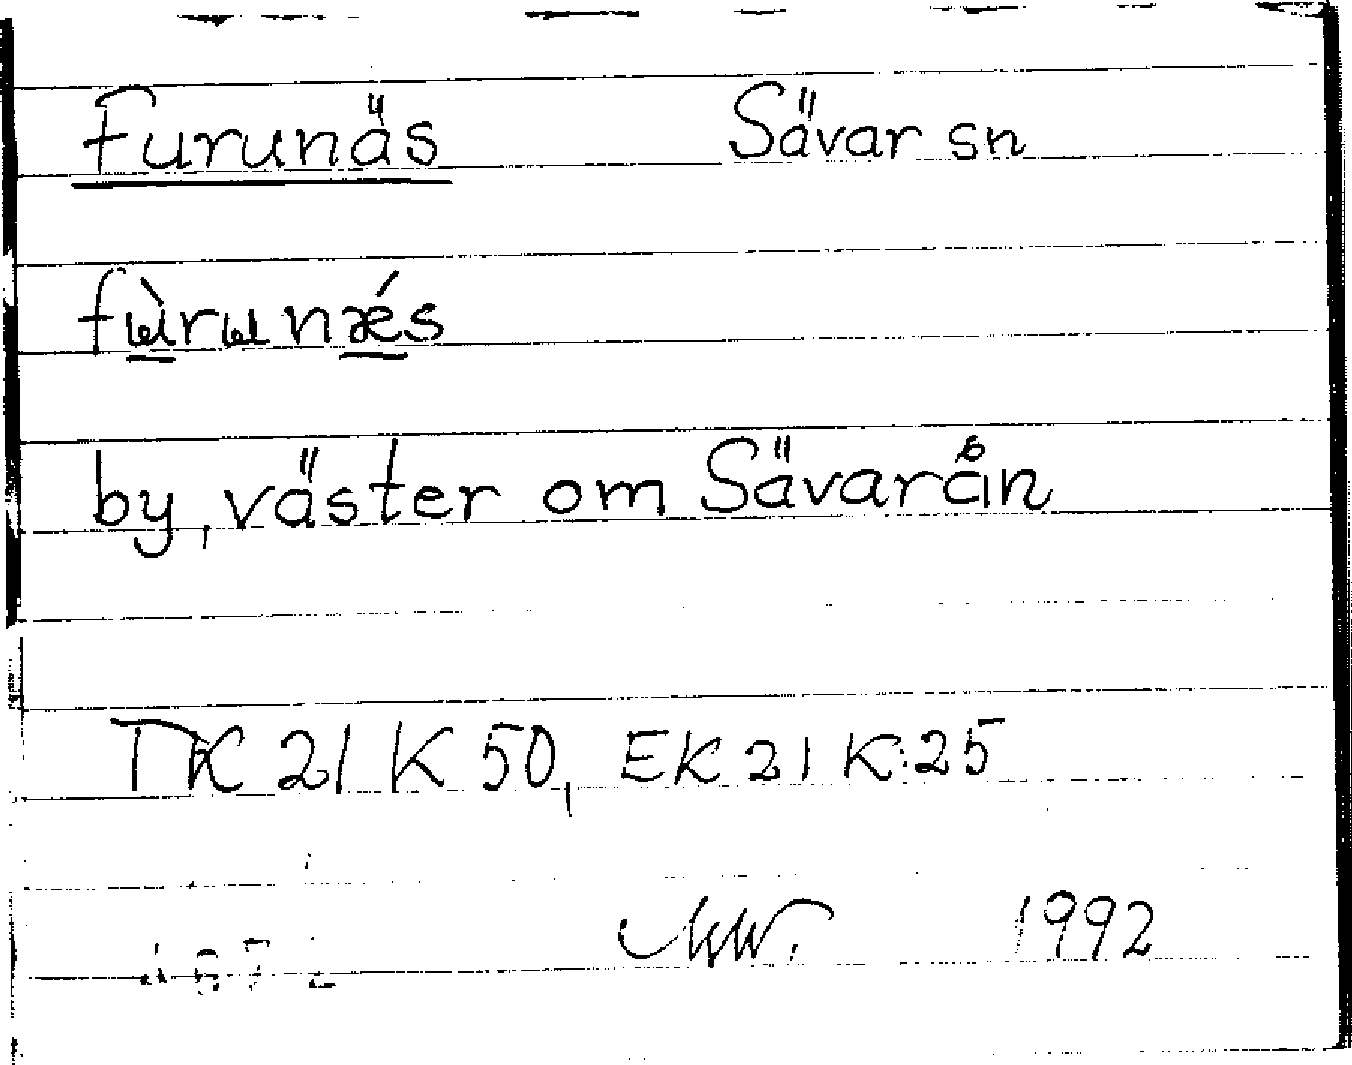 Furunäs Sävar sn
fùrunǽs
by, väster om Sävarån
TK 21 K 50, EK 21 K 25
1992